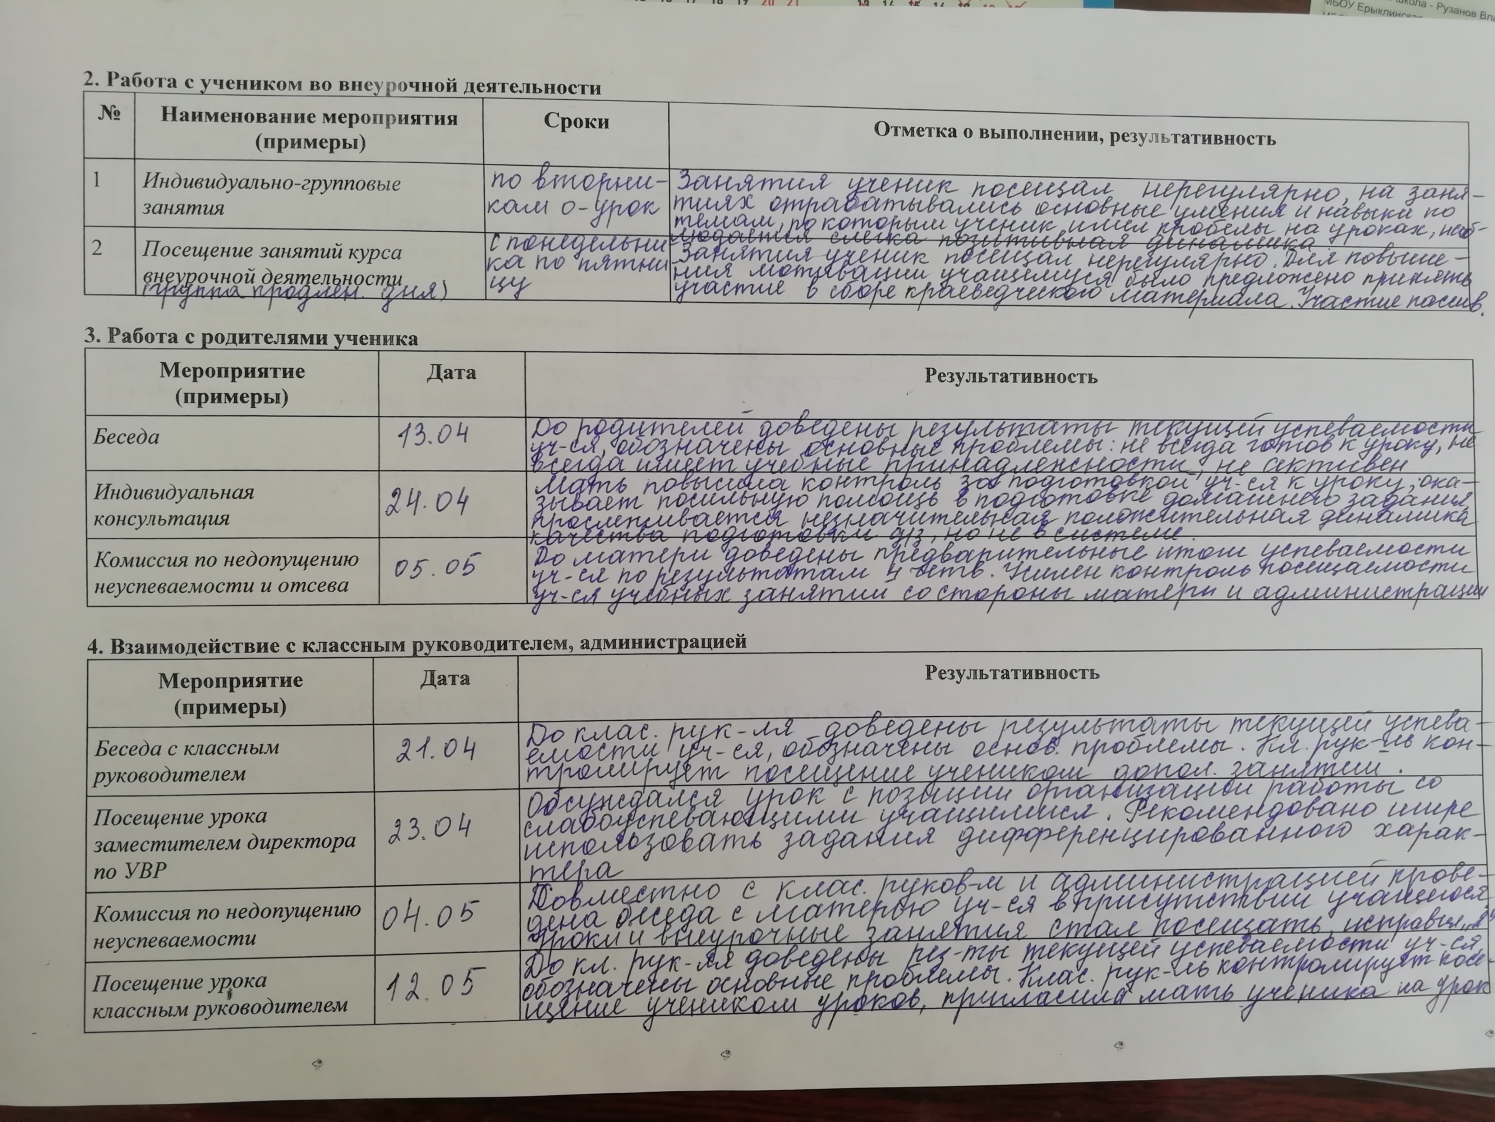 МБОУ Ерыклинская
школа - Рузанов Вла
2. Работа с учеником во внеурочной деятельности
№ Наименование мероприятия (примеры) Сроки Отметка о выполнении, результативность
1 Индивидуально-групповые занятия
по вторни-
кам 0-урок
Занятия ученик посещал нерегулярно, на заня-
тиях отрабатывались основные умения и навыки по
темам, по которым ученик имел пробелы на уроках, наб-
людается слегка позитивная динамика
2 Посещение занятий курса
внеурочной деятельности
(группа продлен. дня)
с понедельни-
ка по пятни
цу
Занятия ученик посещал нерегулярно. Для повыше-
ния мотивации учащемуся было предложено принять
участие в сборе краеведческого материала. Участие пассив.
3. Работа с родителями ученика
Мероприятие (примеры) Дата Результативность
Беседа 13.04
До родителей доведены результаты текущей успеваемости
уч-ся, обозначены основные проблемы: не всегда готов к уроку, не
всегда имеет учебные принадлежности, не активен
Индивидуальная
консультация
24.04
Мать повысила контроль за подготовкой уч-ся к уроку, ока-
зывает посильную помощь в подготовке домашнего задания,
прослеживается незначительная положительная динамика
качества подготовки д/з, но не в системе.
Комиссия по недопущению
неуспеваемости и отсева
05.05
До матери доведены предварительные итоги успеваемости
уч-ся по результатам 4 четв. Усилен контроль посещаемости
уч-ся учебных занятий со стороны матери и администрации
4. Взаимодействие с классным руководителем, администрацией
Мероприятие (примеры) Дата Результативность
Беседа с классным
руководителем
21.04
До клас. рук-ля доведены результаты текущей успева-
емости уч-ся, обозначены основ. проблемы. Кл. рук-ль кон-
тролирует посещение учеником допол. занятий.
Посещение урока
заместителем директора
по УВР
23.04
Обсуждался урок с позиции организации работы со
слабоуспевающими учащимися. Рекомендовано шире
использовать задания дифференцированного харак-
тера
Комиссия по недопущению
неуспеваемости
04.05
Совместно с клас. руков-м и администрацией прове-
дена беседа с матерью уч-ся в присутствии учащегося.
Уроки и внеурочные занятия стал посещать,
Посещение урока
классным руководителем
12.05
До кл. рук-ля доведены рез-ты текущей успеваемости уч-ся,
обозначены основные проблемы. Клас. рук-ль контролирует посе-
щение учеником уроков, пригласила мать ученика на урок